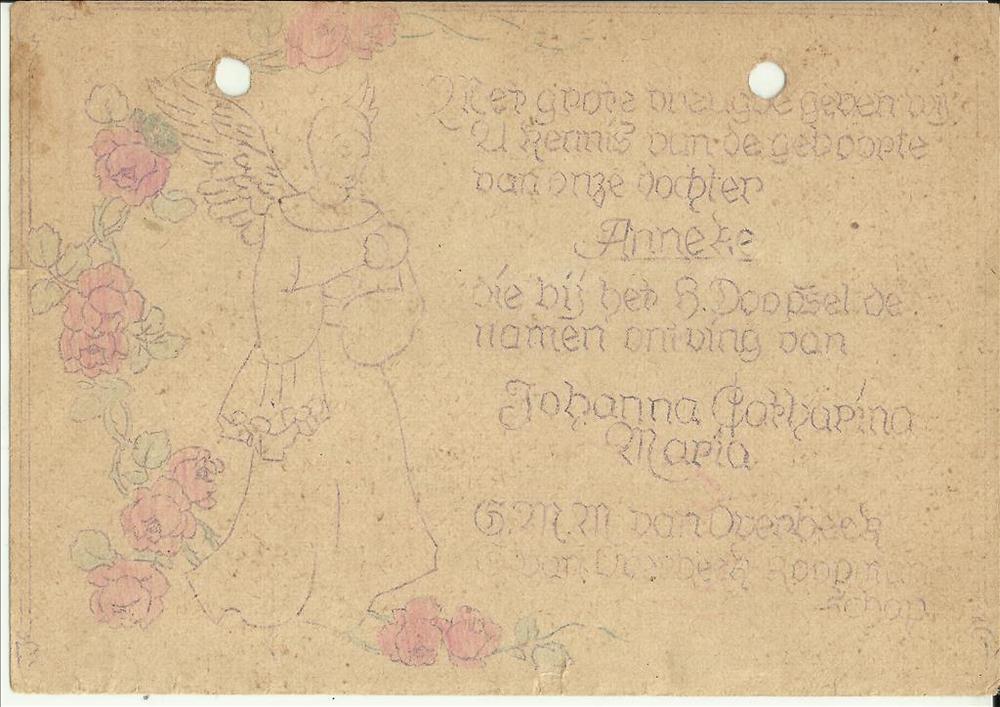 Met grote vreugde geven wij
U kennis van de geboorte
van onze dochter
Anneke
die bij het H. Doopsel de
namen ontving van
Johanna Catharina
Maria
G.M.M. van Overbeek
van Overbeek